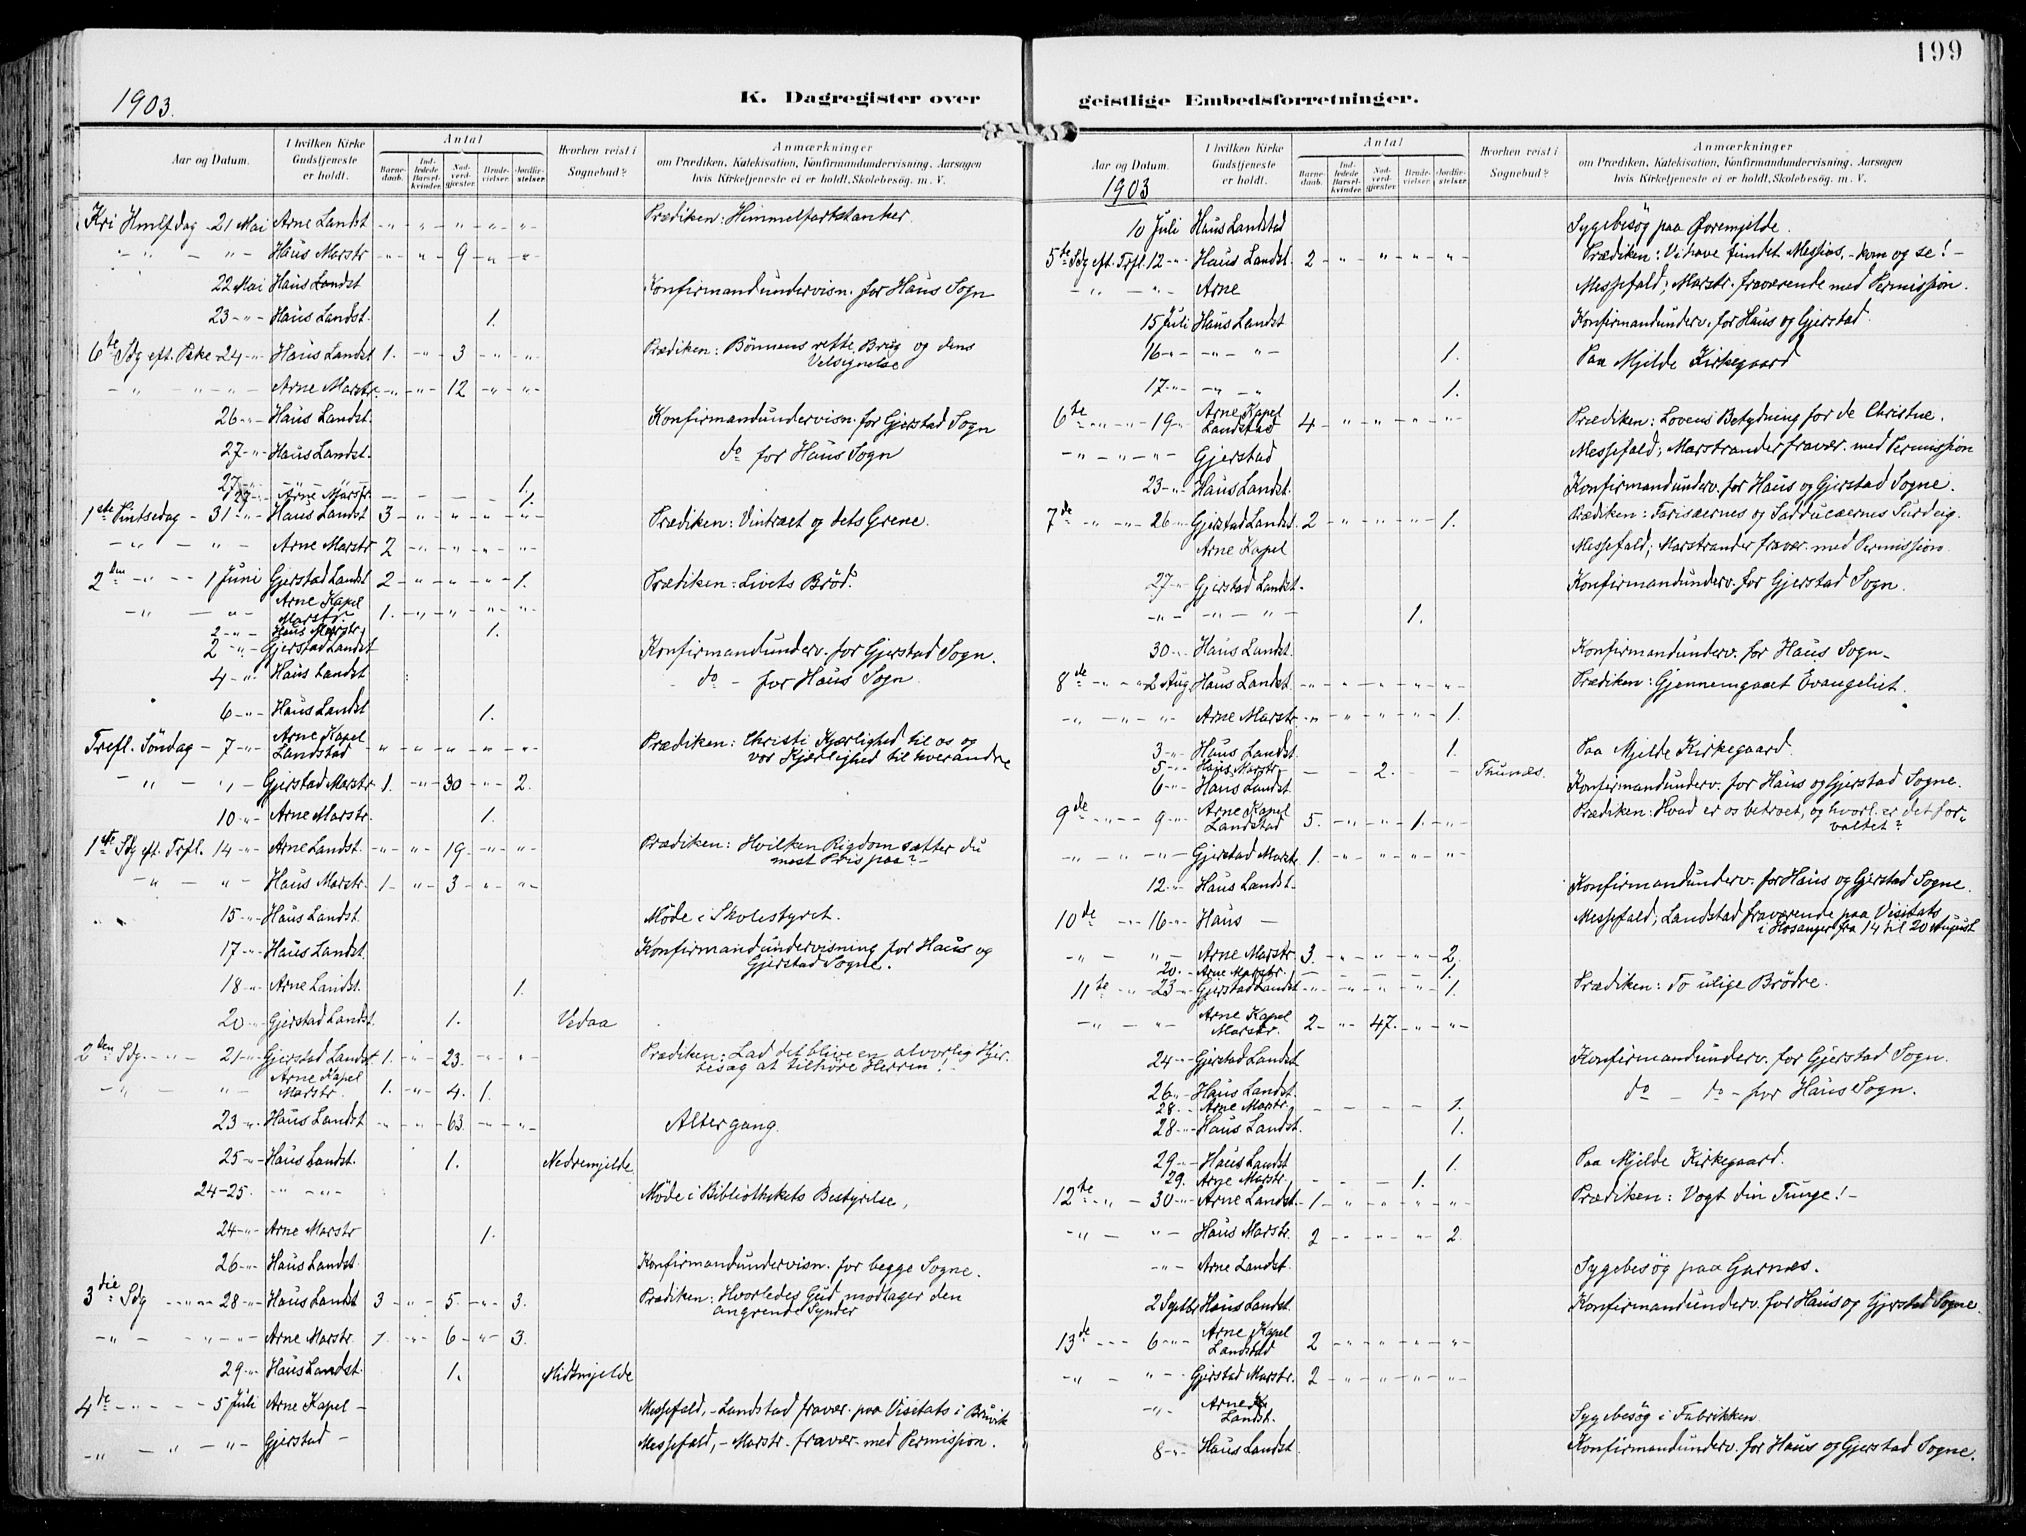 199
1903.
K. Dagregister over geistlige Embedsforretninger.
Aar og Datum.
I hvilken Kirke Gudstjeneste er holdt.
Antal
Barnedaab.
Indledede Barselkvinder.
Nadverdgjæster.
Brudevielser.
Jordfæstelser.
Hvorhen reist i Sognebud?
Anmærkninger
om Prædiken, Katekisation, Konfirmandundervisning, Aarsagen
hvis Kirketjeneste ei er holdt, Skolebesøg. m. V.
Kri Hmlfdag - 21 Mai Arne Landst - " - " - " - " - " - Prædiken: Himmelfartstanker.
- " - " - Haus Marstr - " - " - 9 - " - " -
22 Mai Haus Landst Konfirmandundervisn. for Haus Sogn
23 - " - Haus Landst. 1.
6te Sdg eft. Paske - 24 - " - Haus Landst 1. - " - 3 - " - " - Prædiken: Bönnens rette Brug og dens
Velsignelse
- " - " - " - Arne Marstr. - " - " - 12 - " - " -
26 - " - Haus Landst. Konfirmandundervisn. for Gjerstad Sogn
27 - " - Haus Landst. do for Haus Sogn
27 - " - 1.
27 - " - Arne Marstr - - - - 1.
1ste Pintsedag - 31 - " - Haus Landst 3 - " - " - " - " - Prædiken: Vintræet og dets Grene.
- " - " - Arne Marstr 2 - " - " - " - " -
2den - " - - 1 Juni Gjerstad Landst 2 - " - " - " - 1. Prædiken: Livets Bröd.
- " - " - Arne Kapel
Marstr. 1. - " - " - " - " -
2 - " - Haus Marstr. 1.
2 - " - Gjerstad Landst Konfirmandunderv. for Gjerstad Sogn.
4 - " - Haus Landst - do - for Haus Sogn.
6 - " - Haus Landst 1.
Trefl. Söndag - 7 - " - Arne Kapel
Landstad - " - " - " - " - " - Prædiken: Christi Kjærlighed til os og
vor Kjærlighed til hverandre
- " - " - Gjerstad Marstr 1. - " - 30 - " - 2.
10 - " - Arne Marstr. 1.
1ste Sdg eft. Trfl. 14 - " - Arne Landst. - " - " - 19 - " - " - Prædiken: Hvilken Rigdom sætter du
mest Pris paa? -
- " - " - Haus Marstr. 1 - " - 3 - " - " -
15 - " - Haus Landst. Möde i Skolestyret.
17 - " - Haus Landst. Konfirmandundervisning for Haus og
Gjerstad Sogne.
18 - " - Arne Landst. 1.
20 - " - Gjerstad Landst. 1. Vedaa
2den Sdg. - " - 21 - " - Gjerstad Landst 1. - " - 23. - " - " - Prædiken: Lad det blive en alvorlig Hjer-
tesag at tilhöre Herren! -
- " - " - Arne Kapel
Marstr. 1. - " - 4. - 1.
23 - " - Haus Landst - " - " - 63. - " - " - Altergang.
25 - " - Haus Landst. 1. Nedremjelde
24-25. - " - " - Möde i Bibliothekets Bestyrelse,
24 - " - Arne Marstr 1.
26 - " - Haus Landst. Konfirmandundervisn. for begge Sogne.
3die Sdg - " - " - 28 - " - Haus Landst 3 - " - 5. - " - 3. Prædiken: Hvorledes Gud modtager den
angrende Synder
- " - " - " - Arne Marstr. 1. - " - 6 - " - 3.
29 - " - Haus Landst. 1. Midtmjelde
4de - " - " - 5 Juli Arne Kapel - Messefald, - Landstad fravær. paa Visitats i Bruvik
- " - " - " - Gjerstad - Messefald, - Marstr. fravær. med Permission.
Aar og Datum.
1903
I hvilken Kirke Gudstjeneste er holdt.
Antal
Barnedaab.
Indledede Barselkvinder.
Nadverdgjæster.
Brudevielser.
Jordfæstelser.
Hvorhen reist i Sognebud?
Anmærkninger
om Prædiken, Katekisation, Konfirmandundervisning, Aarsagen
hvis Kirketjeneste ei er holdt, Skolebesøg. m. V.
10 Juli Haus Landstad Sygebesög paa Øvremjelde.
5te Sdg eft. Trfl. 12 - " - Haus Landst. 2 - " - " - " - " - Prædiken: Vi have fundet Messias, - kom og se! -
- " - " - Arne Messefald; Marstr. fraværende med Permission.
15 Juli Haus Landst Konfirmandunderv. for Haus og Gjerstad.
16 - " - " - " 1. Paa Mjelde Kirkegaard
17 - " - " - " 1.
6te - " - " - 19 - " Arne Kapel
Landstad 4 - " - " - " - " - Prædiken: Lovens Betydning for de Christne.
- " - " - " - Gjerstad Messefald; Marstrander fravær. med Permission
23 - " - Haus Landst. Konfirmandunderv. for Haus og Gjerstad Sogne.
7de - " - " - 26 - " Gjerstad Landst. 2 - " - " - " - 1. Prædiken: Farisæernes og Sadducæernes Surdeig.
Arne Kapel Messefald; Marstrander fravær. med Permission.
27 - " Gjerstad Landst. Konfirmandunderv. for Gjerstad Sogn.
- " - " - " - " 1.
30 - " - Haus Landst. Konfirmandunderv. for Haus Sogn.
8de - " - " 2 Aug Haus Landst. - " - " - " - " - " - Prædiken: Gjennemgaaet Evangeliet.
- " - " - " - Arne Marstr. - " - " - " - " - 1.
3 - " - Haus Landst. 1. Paa Mjelde Kirkegaard.
5 - " - Haus Marstr. - - 2. - - Thunes.
6 - " - Haus Landst. Konfirmandunderv. for Haus og Gjerstad Sogne.
9de - " - - 9 - " - Arne Kapel
Landstad 5. - " - " - 1. - " - Prædiken: Hvad er os betroet, og hvorl. er det for-
valtet?
- " - " - " - Gjerstad Marstr. 1. - " - " - " - " -
12 - " Haus Landst. Konfirmandunderv. for Haus og Gjerstad Sogne.
10de - " - 16 - " - Haus - Messefald; Landstad fraværende paa Visitats
i Hosanger fra 14 til 20 August
- " - " - Arne Marstr. 3. - " - " - " - 2.
20. - Arne Marstr. - - - - 1.
11te - " - 23 - " Gjerstad Landst - " - " - " - " - 1. Prædiken: To ulige Brödre.
- " - " - Arne Kapel
Marstr. 2 - " - 47. - " - " -
24 - " - Gjerstad Landst Konfirmandunderv. for Gjerstad Sogn.
26 - " - Haus Landst. do - do - for Haus Sogn.
28. - Arne Marstr. - - - - 1.
28 - " - Haus Landst. 1.
29 - " - Haus Landst 1. Paa Mjelde Kirkegaard.
29. Arne Marstr. - - - 1.
12te - " - 30 - " - Arne Landst. 1 - " - " - " - " - Prædiken: Vogt din Tunge! -
- " - " - Haus Marstr. 2 - " - " - " - 2.
- " - Arne Landst. Sygebesög paa Garnæs.
2 Septbr. Haus Landst. Konfirmandunderv. for Haus og Gjerstad Sogne.
13de - - - 6 - " - Arne Kapel
Landstad 2 - " - " - " - " -
- " - " - Gjerstad Marstr. 2 - " - " - " - " -
- " - Arne
Landst. Sygebesög i Fabrikken.
8 - " - Haus Landst. Konfirmandunderv. for Haus og Gjerstad Sogne.